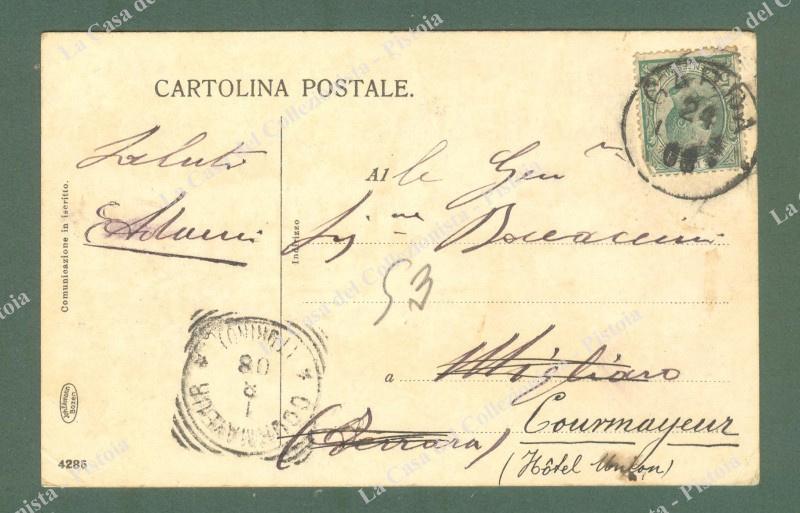 CARTOLINA POSTALE.
Saluti
Adami
Comunicazione in iscritto.
Indirizzo
24
Al le Gen.me
Sig.ne Boccaccini
53
a Migliaro
(Ferrara)
Courmayeur
(Hôtel Union)
COURMAYEUR
(TORINO)
1
8
08
Joh. Amonn
Bozen
4286
La Casa del Collezionista - Pistoia